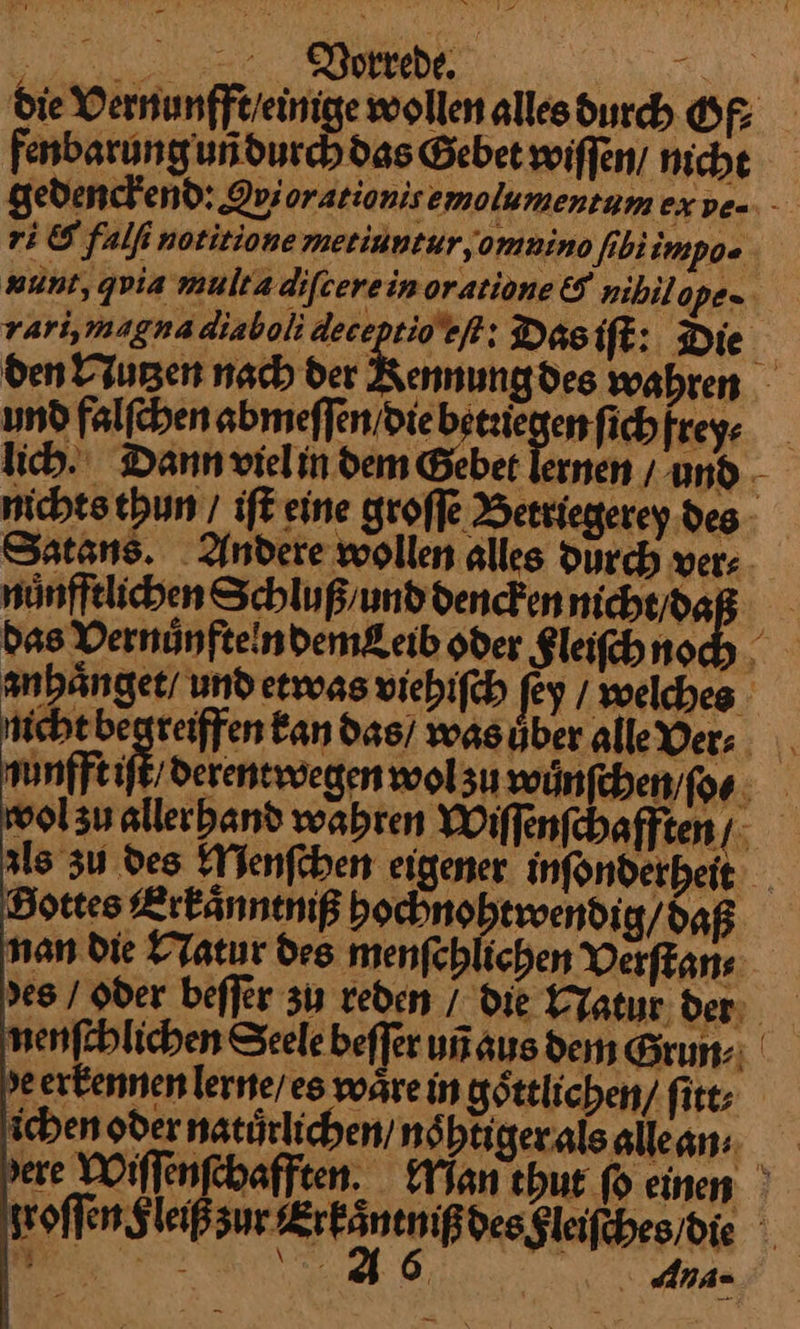 Vorrede.
die Vernunfft/einige wollen alles durch Of⸗
fenbarung uñ durch das Gebet wiſſen/ nicht
gedenckend: Qvi orationis emolumentum ex ve-
ri & falſi notitione metiuntur, omnino ſibi impo-
nunt, qvia multa diſcere in oratione & nihil ope-
rari, magna diaboli deceptio eſt: Das iſt: Die
den Nutzen nach der Kennung des wahren
und falſchen abmeſſen/die betriegen ſich frey⸗
lich. Dann viel in dem Gebet lernen / und
nichts thun / iſt eine groſſe Betriegerey des
Satans. Andere wollen alles durch ver⸗
nuͤnfftlichen Schluß/und dencken nicht/daß
das Vernuͤnfteln dem Leib oder Fleiſch noch
anhaͤnget/ und etwas viehiſch ſey / welches
nicht begreiffen kan das/ was uͤber alle Ver⸗
nunfft iſt/derentwegen wol zu wuͤnſchen/ſo⸗
wol zu allerhand wahren Wiſſenſchafften /
als zu des Menſchen eigener inſonderheit
Gottes Erkaͤnntniß hochnohtwendig/daß
man die Natur des menſchlichen Verſtan⸗
des / oder beſſer zu reden / die Natur der
menſchlichen Seele beſſer uñ aus dem Grun⸗
de erkennen lerne/es waͤre in goͤttlichen/ ſitt⸗
lichen oder natuͤrlichen/ noͤhtiger als alle an⸗
dere Wiſſenſchafften. Man thut ſo einen
groſſen Fleiß zur Erkaͤntniß des Fleiſches/die
A 6 Ana-